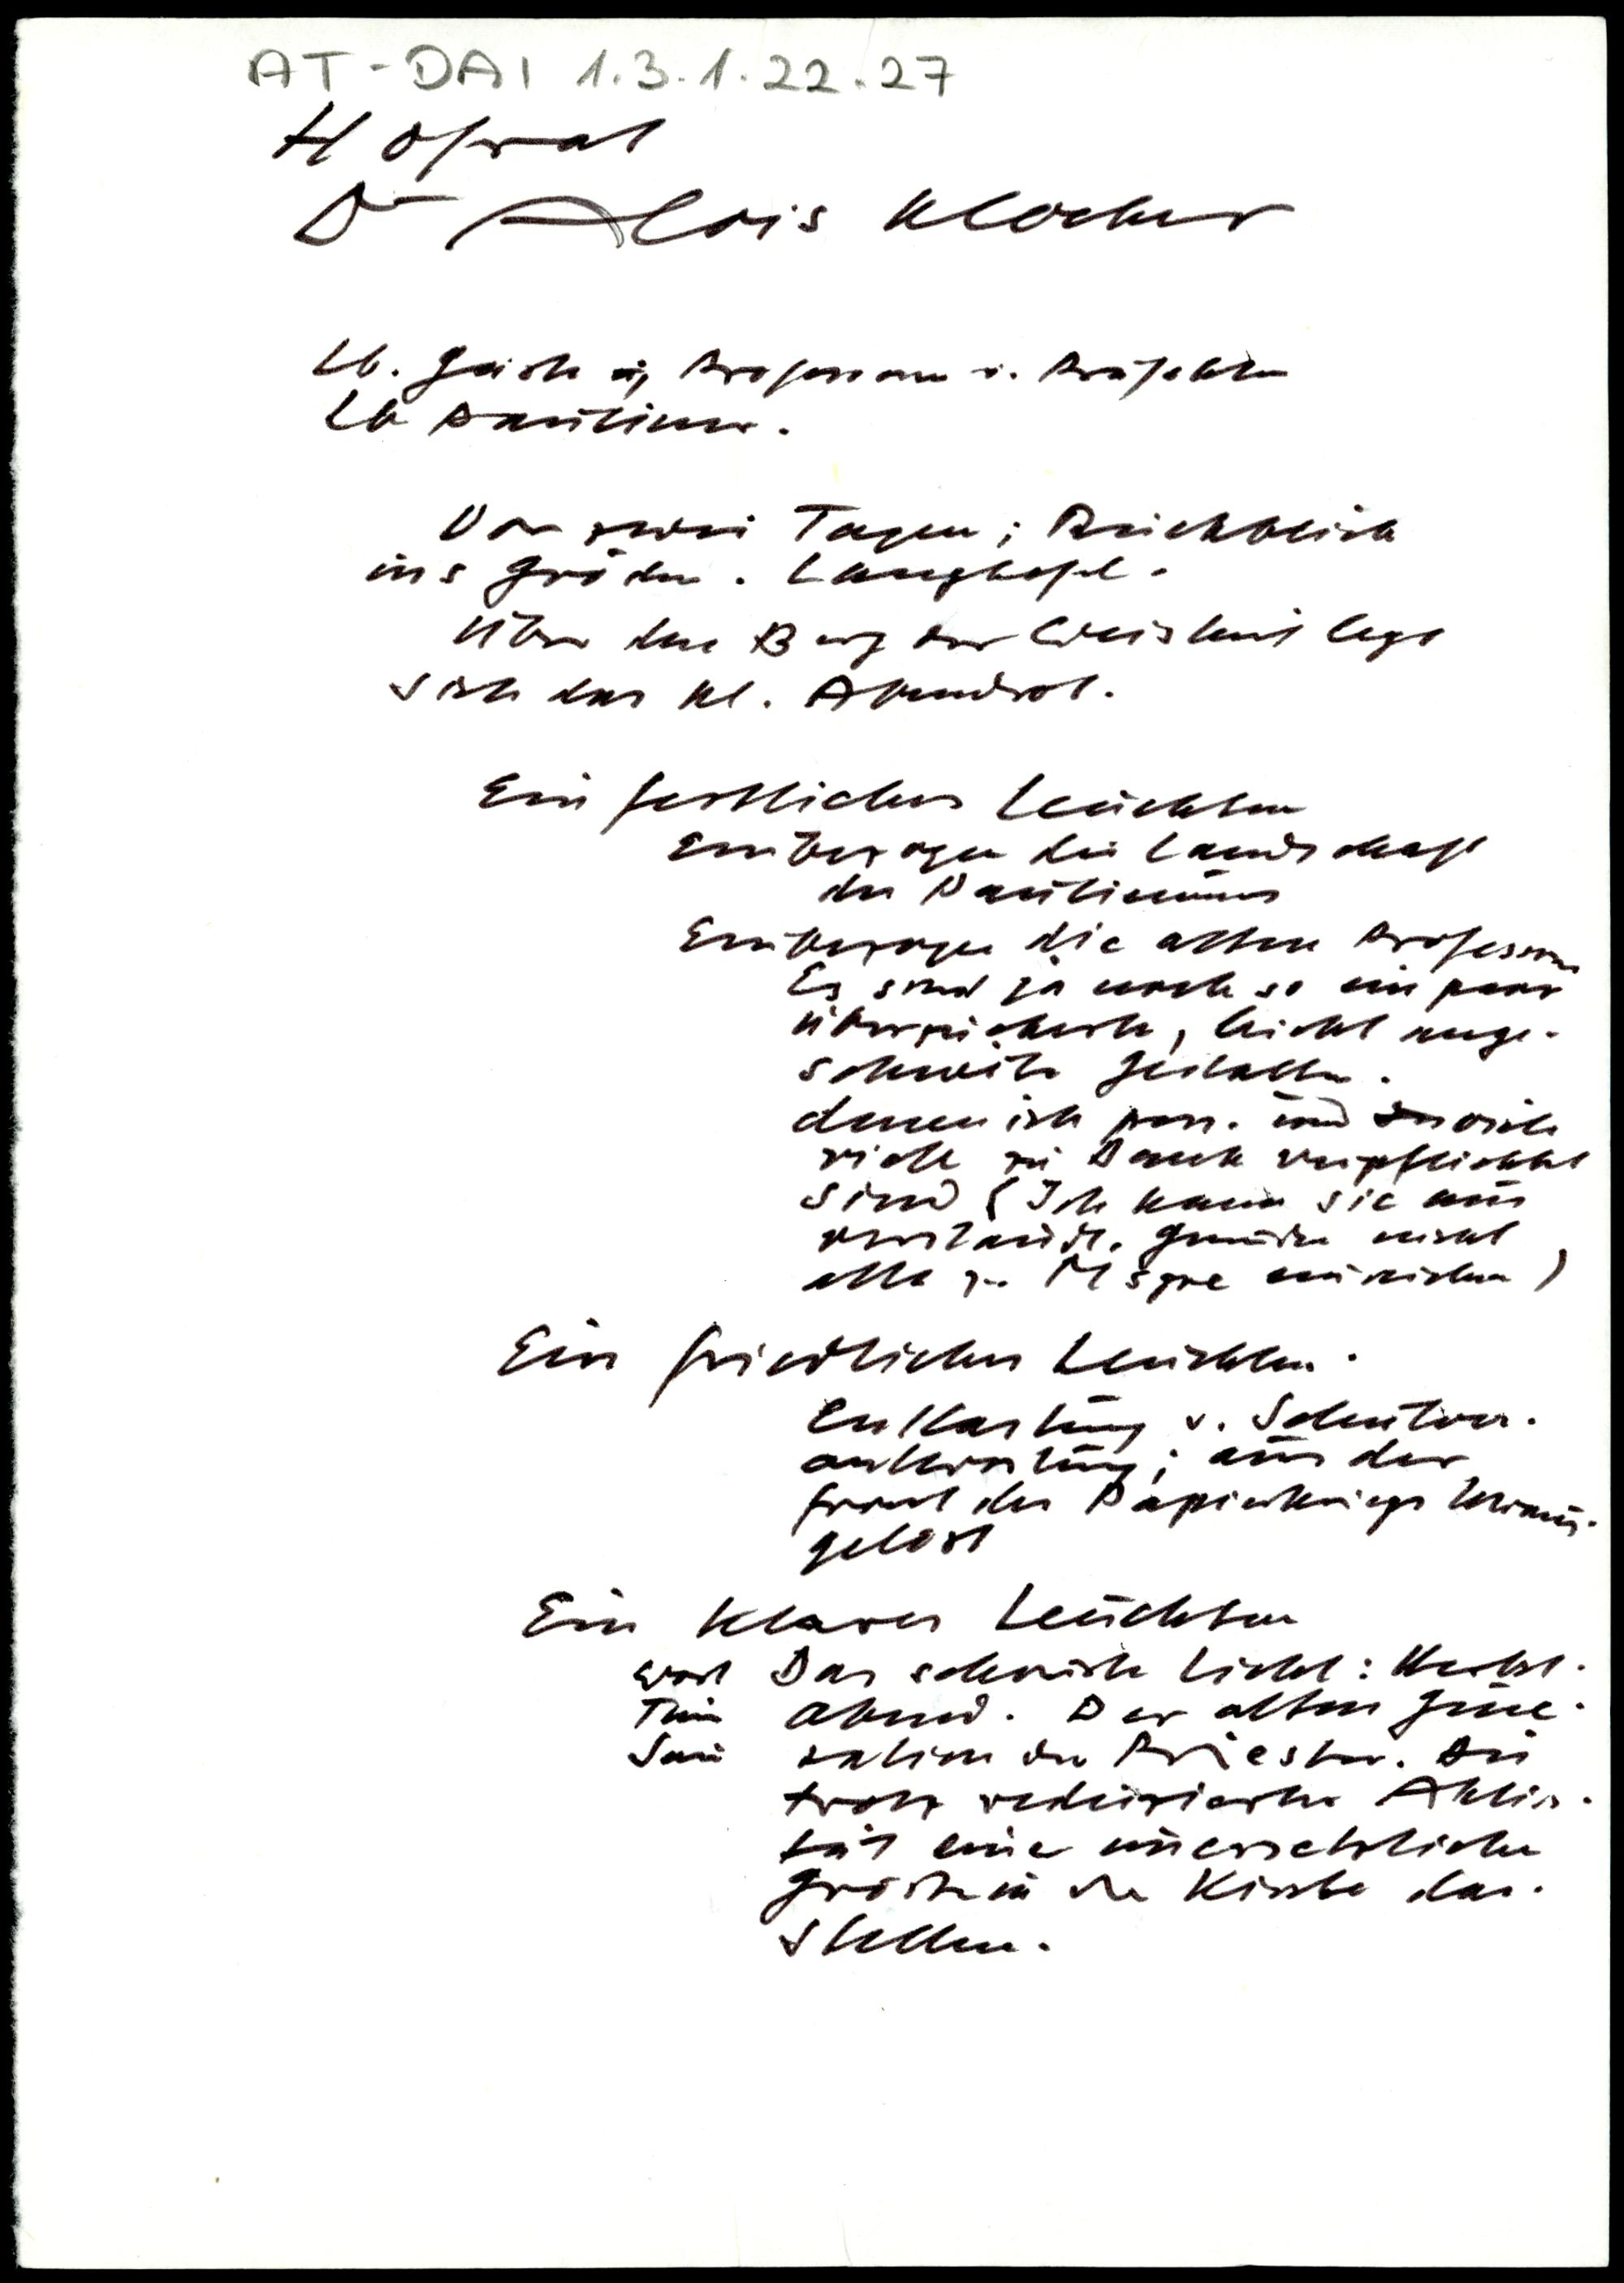 AT-DAI 1.3.1.22.27
Hofrat
Dr Alois Klocker
Lb. Gäste, Professoren u. Präfekten
Lb Pauliner.
Vor zwei Tagen; Rückblick
ins Gröden. Langkofel.
Über den Berg der Weisheit legt
sich das kl. Abendrot.
Ein festliches Leuchten
Einbezogen die Landschaft
des Paulinums
Einbezogen die alten Professoren
Es sind ja noch so ein paar
überzuckerte, leicht ange-
schneite Gestalten.
denen ich pers. und so viele
viele zu Dank verpflichtet
sind (Ich kann sie aus
verständl. Gründen nicht
alle zu Msgre einreichen)
Ein friedliches Leuchten.
Entlastung v. Schulver-
antwortung; aus der
Front des Papierkriegs heraus-
gelöst
Ein klares Leuchten
Wort Das schönste Licht: Herbst-
Tun Abend. Der alten Gene-
Sein ration der Priester. Die
trotz reduzierter Aktivi-
tät eine unersetzliche
Größe in der Kirche dar-
stellen.